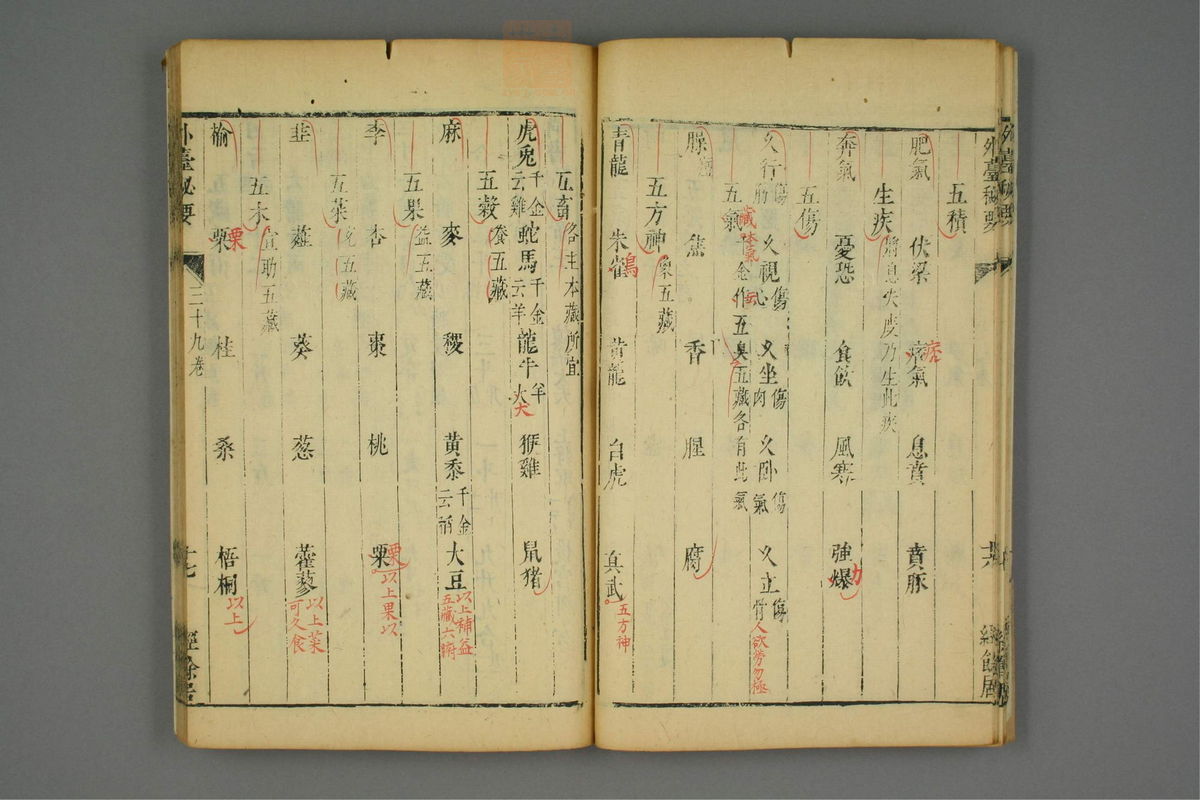 外臺秘要
十六
經餘居
五積
肥氣 伏梁 痞氣 痞 息賁 賁豚
生疾 乃生此疾
奔氣 憂恐 食飲 風寒 強爆 力
五傷
久行傷筋 久視傷心 久坐傷肉 久卧傷氣 久立傷骨 人欲勞勿極
五氣 千金作五臭五藏各有此氣 藏本氣 云
臊 焦 香 腥 腐
五方神 象五藏
青龍 朱雀 鳥 黄龍 白虎 真武 五方神
五畜 各主本藏所宜
虎兎 千金云雞 蛇馬 千金云羊 龍牛羊犬 犬 猴雞 鼠猪
五穀 養五藏
麻 麥 稷 黄黍 千金云稻 大豆 以上補益五藏六腑
五果 益五藏
李 杏 棗 桃 栗 栗 以上果以
五菜 充五藏
韭 薤 葵 葱 藿蓼 以上菜可久食
五木 宜助五藏
榆 栗 栗 桂 桑 梧桐 以上
外臺秘要
三十九卷
十七
經餘居